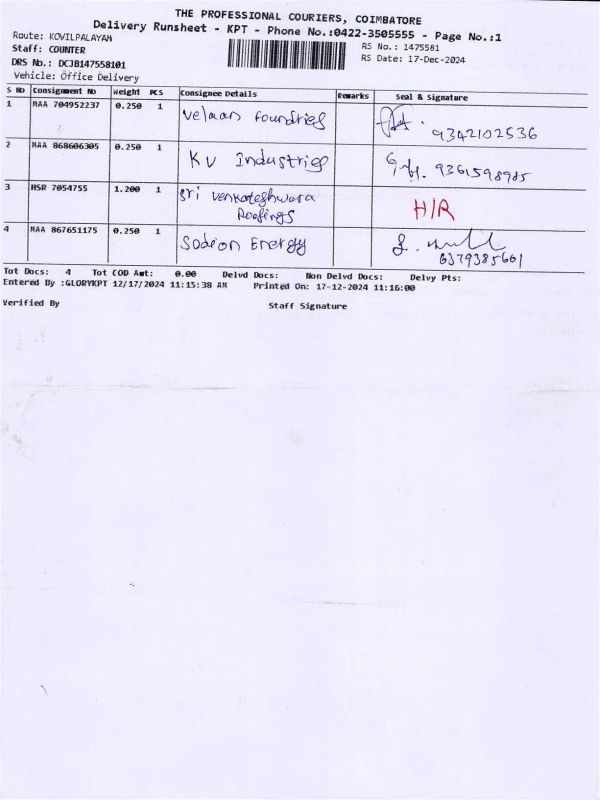 THE PROFESSIONAL COURIERS, COIMBATORE
Delivery Runsheet - KPT - Phone No.:0422-3505555 - Page No.:1
Route: KOVILPALAYAM
RS No.: 1475581
Staff: COUNTER
RS Date: 17-Dec-2024
DRS No.: DCJB147558101
Vehicle: Office Delivery
S No Consignment No Weight PCS Consignee Details Remarks Seal & Signature
1 MAA 704952237 0.250 1 Velaan Foundries 9342102536
2 MAA 868606305 0.250 1 KV Industries 9361598985
3 HSR 7054755 1.200 1 Sri Venkateshwara Roofings H/R
4 MAA 867651175 0.250 1 Sodeon Energy 6379385661
Tot Docs: 4 Tot COD Amt: 0.00 Delvd Docs: Non Delvd Docs: Delvy Pts:
Entered By :GLORYKPT 12/17/2024 11:15:38 AM Printed On: 17-12-2024 11:16:00
Verified By Staff Signature